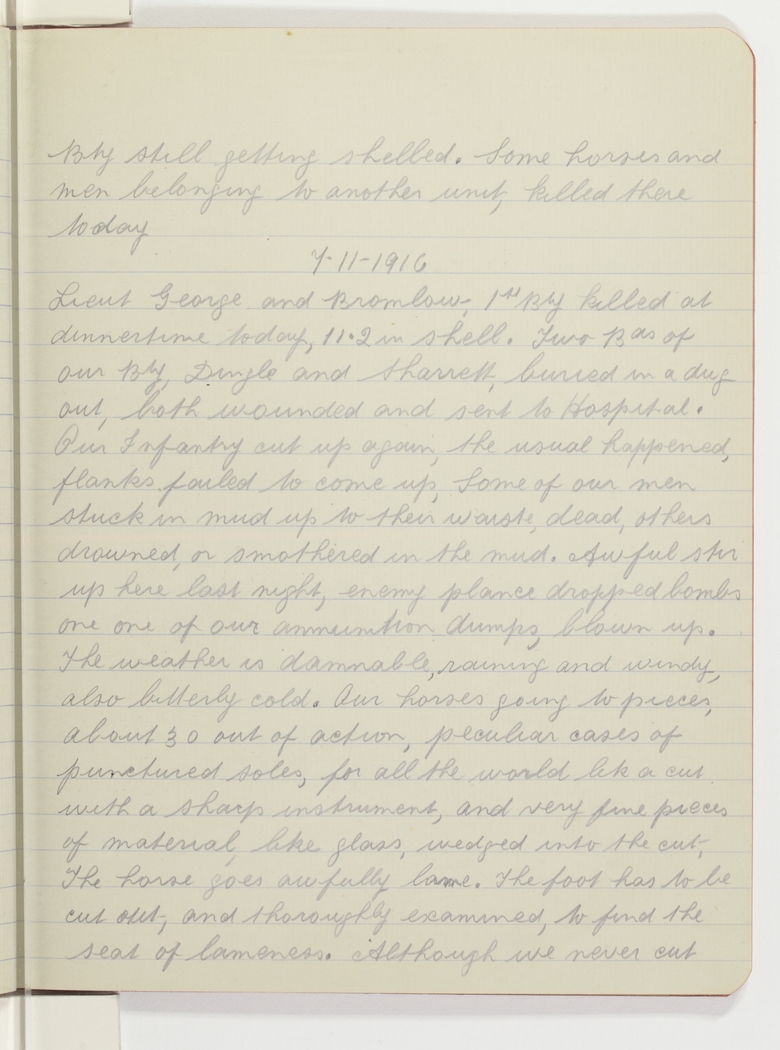 Bty still getting shelled. Some horses and
men belonging to another unit, killed there
today
7-11-1916
Lieut George and Bromlow, 1st Bty killed at
dinnertime today, 11.2 in shell. Two Bds of
our Bty, Dingle and Sharrett, buried in a dug
out, both wounded and sent to Hospital.
Our Infantry cut up again, the usual happened,
flanks failed to come up, Some of our men
stuck in mud up to their waists, dead, others
drowned, or smothered in the mud. Awful stir
up here last night, enemy planes dropped bombs
one one of our ammunition dumps, blown up.
The weather is damnable, raining and windy,
also bitterly cold. Our horses going to pieces,
about 30 out of action, peculiar cases of
punctured soles, for all the world lik a cut
with a sharp instrument, and very fine pieces
of material, like glass, wedged into the cut,
The horse goes awfully lame. The foot has to be
cut out, and thoroughly examined, to find the
seat of lameness. Although we never cut